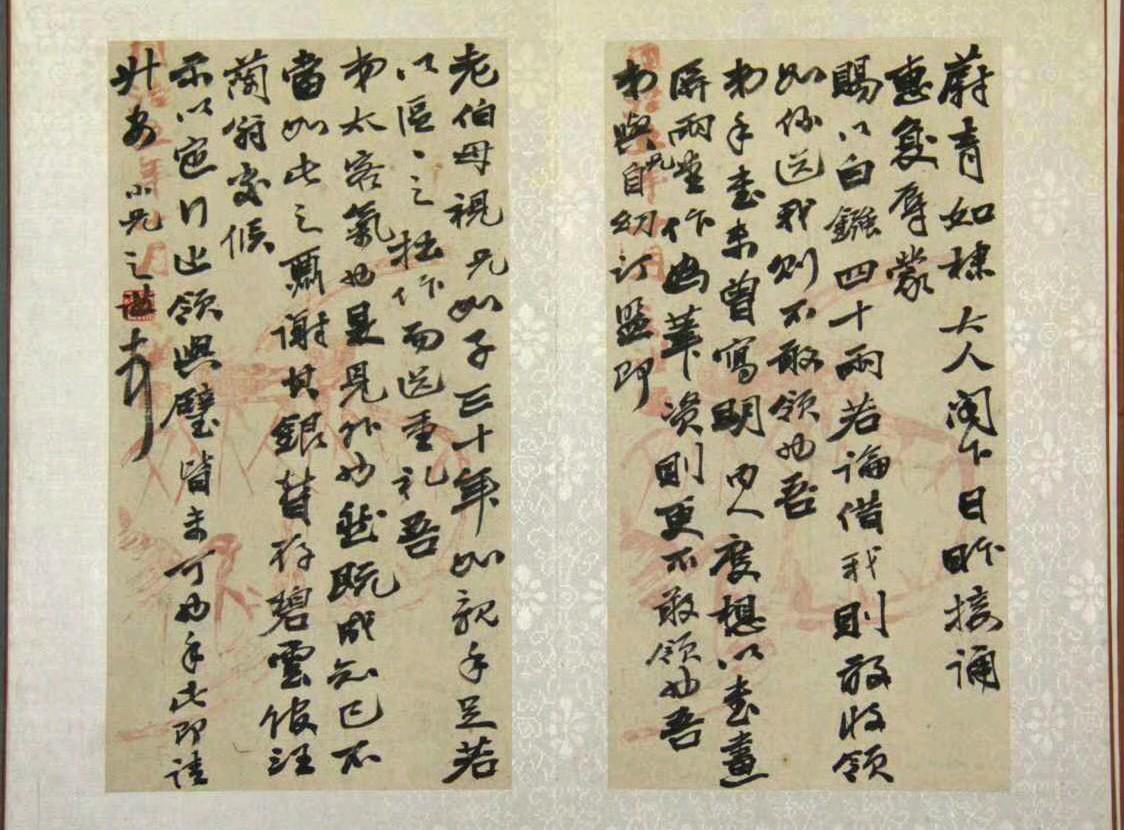 蔚青如棣大人阁下日昨接誦
惠複辱蒙
賜以白鏹四十兩若論借我則敢收領
如係送我則不敢領也吾
弟手書未曾寫明內人度想以書畫
屏兩堂作為筆資則更不敢領也吾
弟與兄自幼訂盟即
老伯母視兄如子三十年如親手足若
以區二之拙作而送重礼吾
弟太客氣也是見外也然既成知己不
當如此之 謝其銀暫存碧雲俟汪
蘭翁安候
示以定行止領與璧皆未可也手此即請
升安 小兄之謙